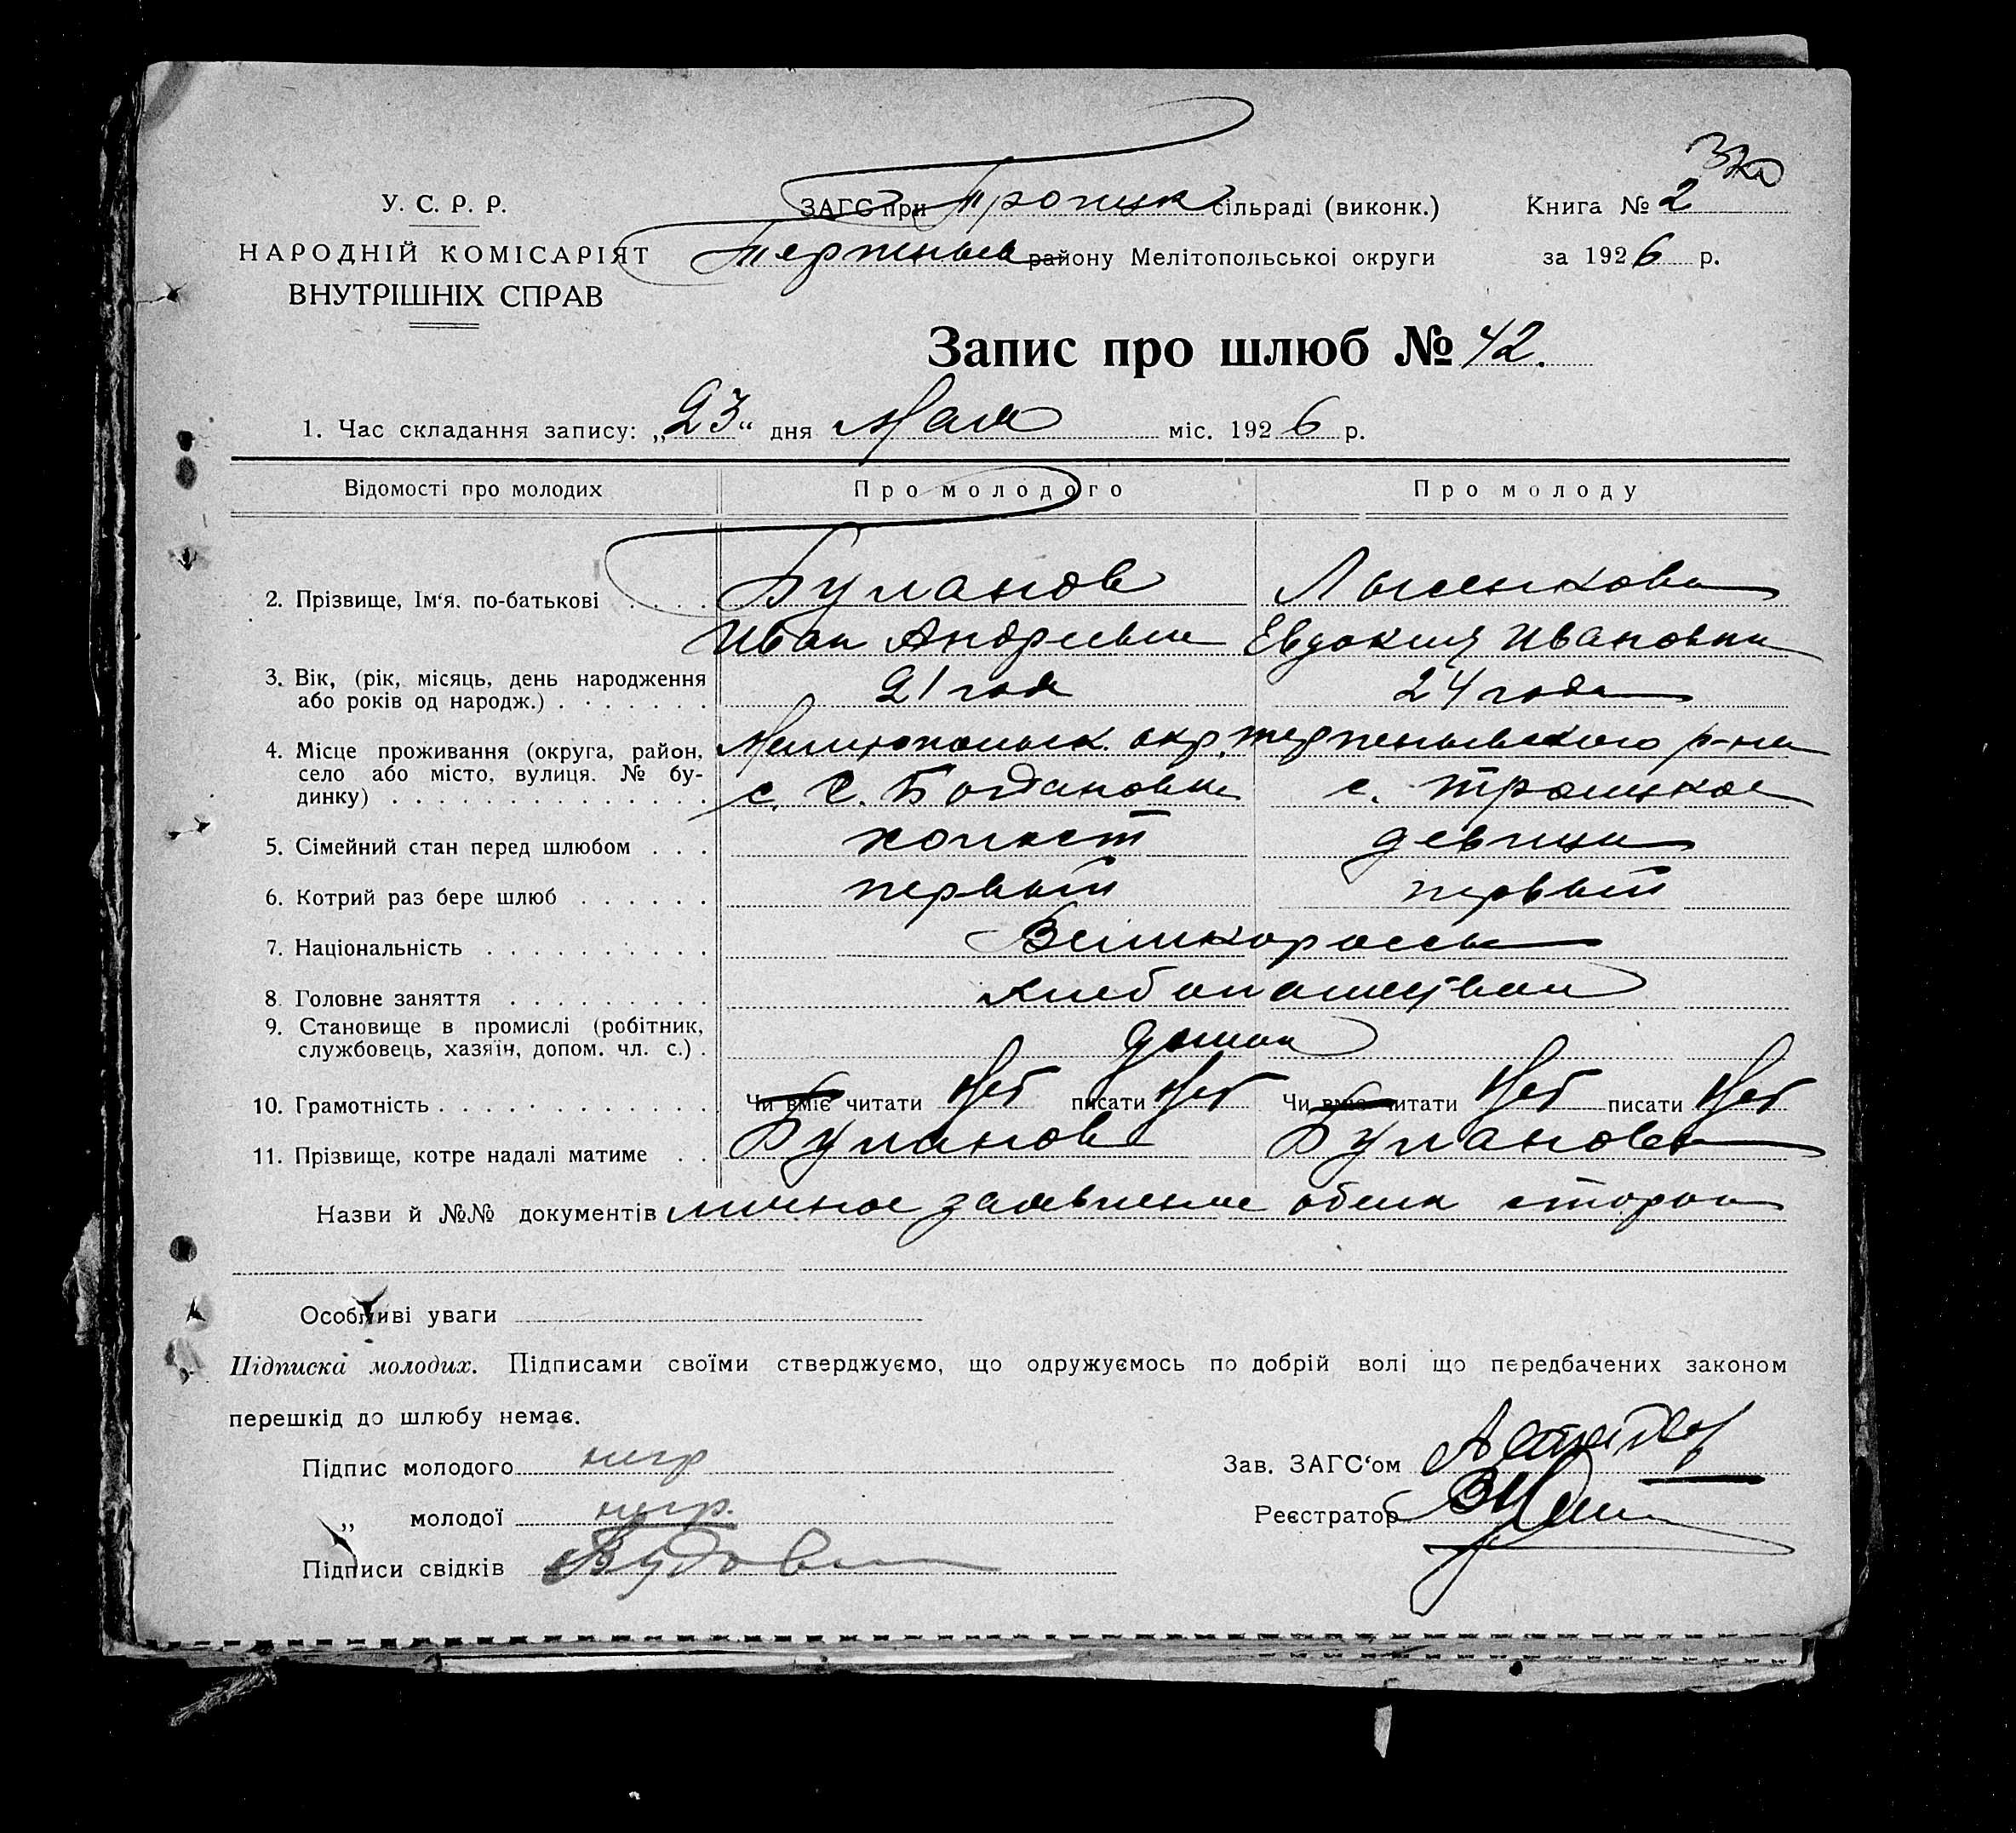 У. С. Р. Р.
НАРОДНІЙ КОМІСАРІЯТ
ВНУТРІШНІХ СПРАВ
ЗАГС при Троицк сільраді (виконк.)
району Мелітопольської округи
Книга № 2
за 1926 р.
Запис про шлюб № 42.
1. Час складання запису: „23“ дня Мая міс. 1926 р.
Відомості про молодих Про молодого Про молоду
2. Прізвище, Ім‘я. по-батькові . . . . Буланов
Иван Андреевич Евдокия Ивановна
3. Вік, (рік, місяць, день народження
або років од народж.) . . . . . . . 21 год 24 года
4. Місце проживання (округа, район, Мелитопольск. окр. терпеньевского р-на
село або місто, вулиця. № бу-
динку) . . . . . . . . . . . . . . с. Богдановка с. Троицкое
5. Сімейний стан перед шлюбом . . . холост девица
6. Котрий раз бере шлюб . . . . . . первый первый
7. Національність . . . . . . . . . . Великороссы
8. Головне заняття . . . . . . . . . хлебопашество
9. Становище в промислі (робітник,
службовець, хазяїн, допом. чл. с.) .
10. Грамотність . . . . . . . . . . . . Чи вміє читати Нет писати Нет Чи вміє читати Нет писати Нет
11. Прізвище, котре надалі матиме . . Буланов Буланова
Назви й №№ документів личное заявление обеих сторон
Особливі уваги
Підписка молодих. Підписами своїми стверджуємо, що одружуємось по добрій волі що передбачених законом
перешкід до шлюбу немає.
Підпис молодого негр
„ молодої негр.
Підписи свідків
Зав. ЗАГС‘ом
Реєстратор